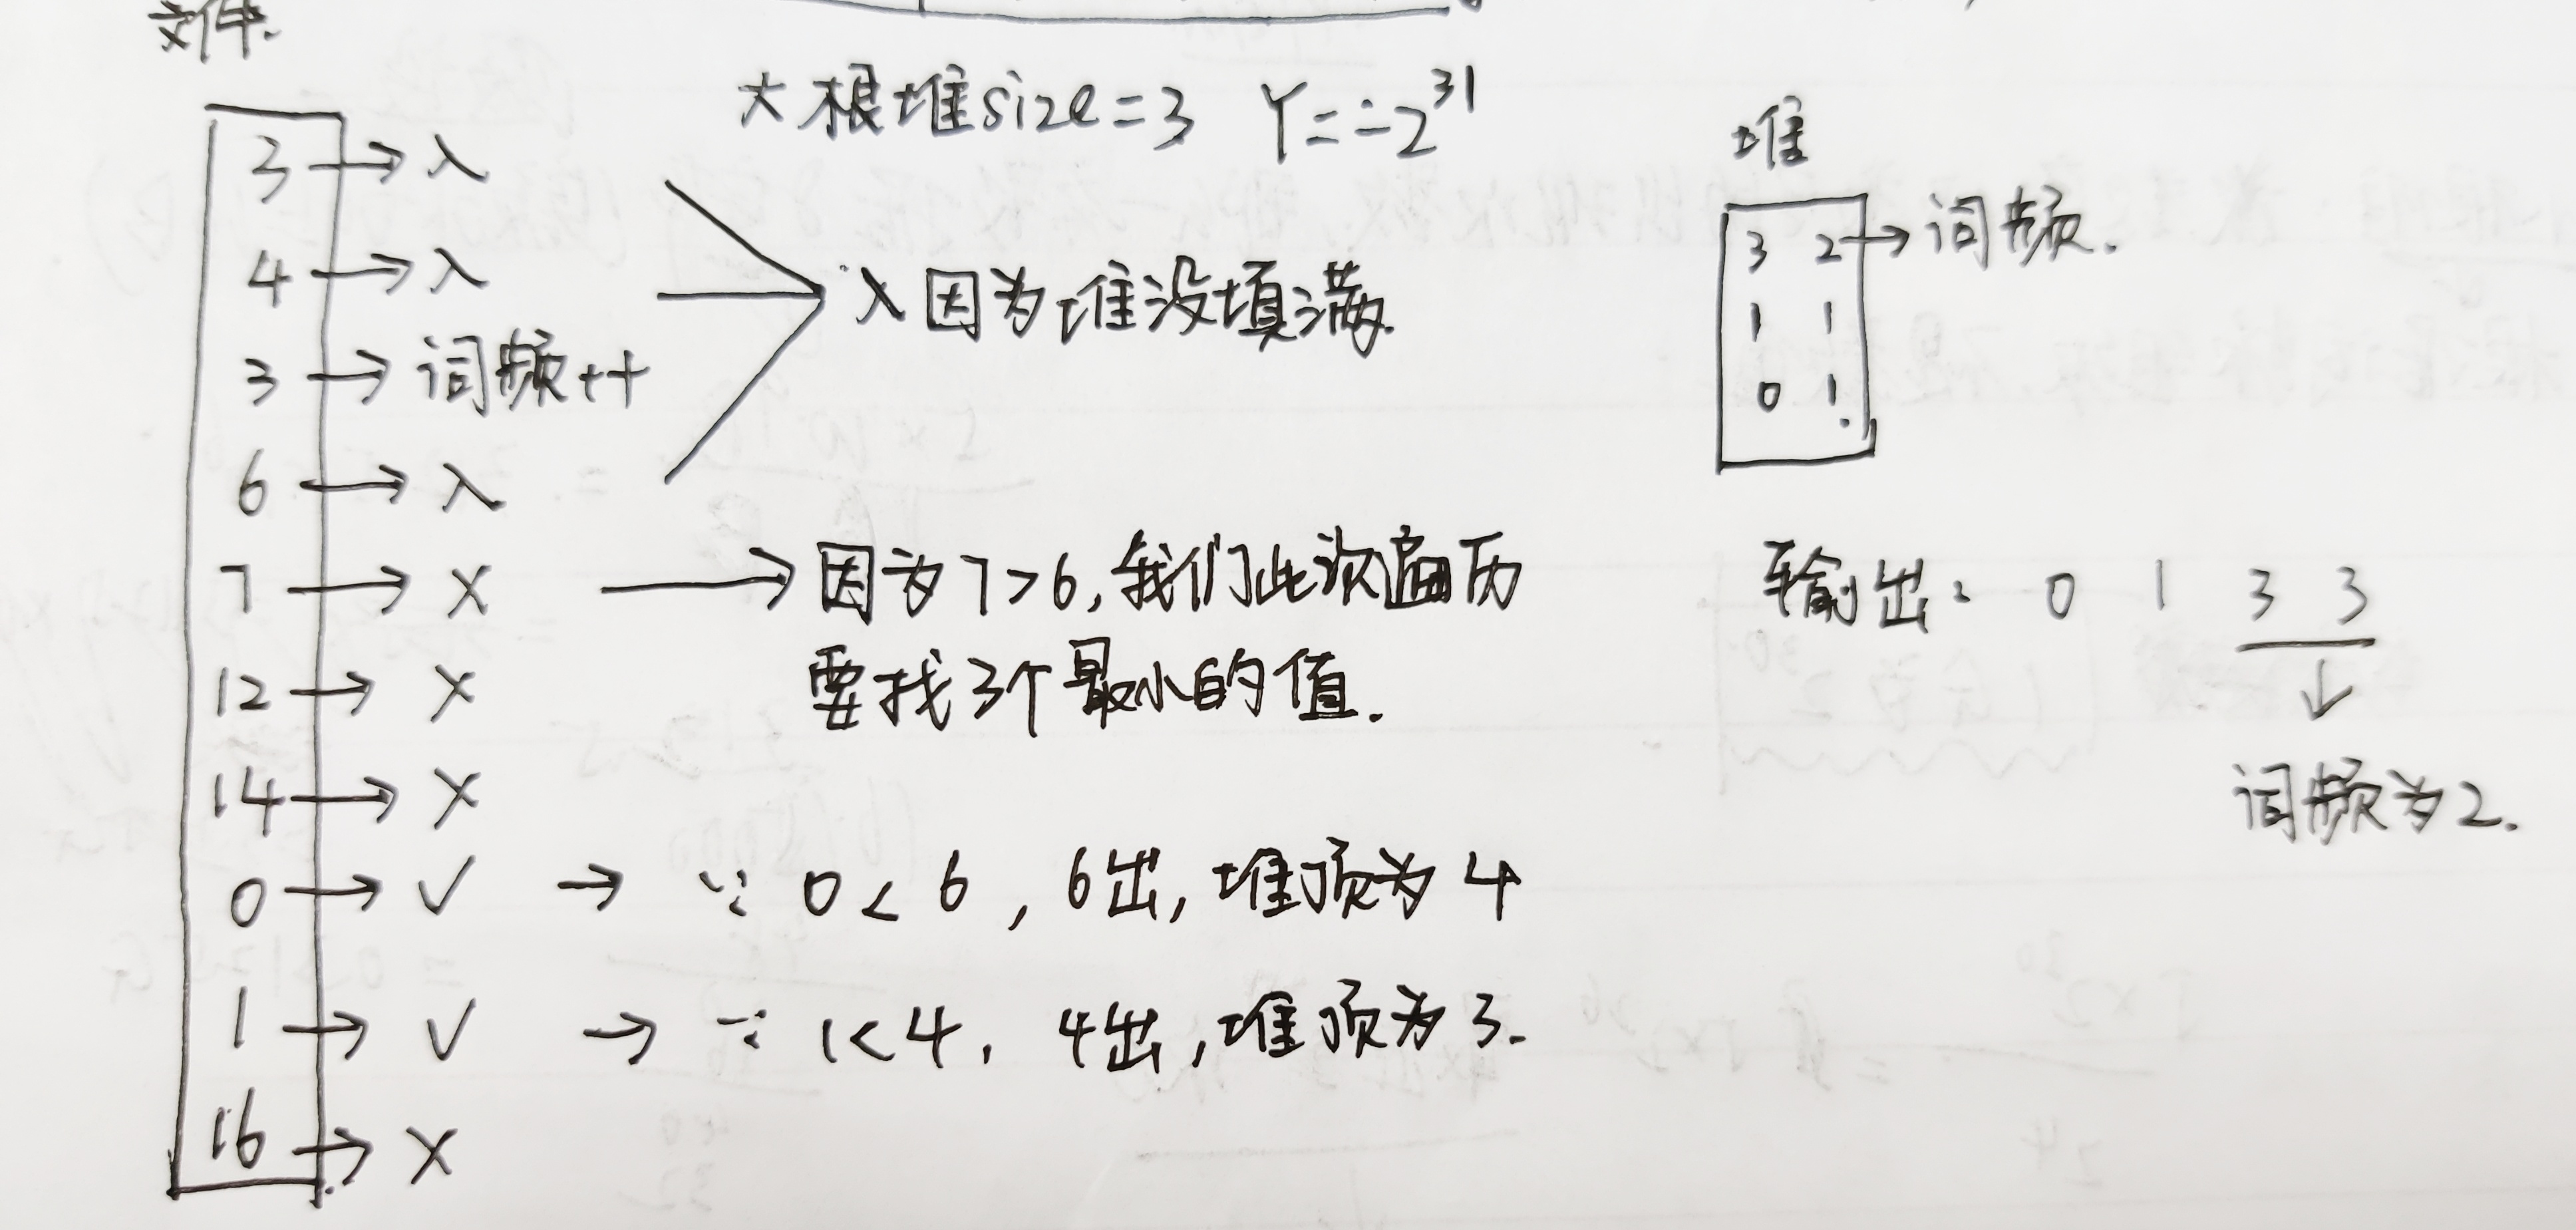 文件.
大根堆size=3 Y=-2^31
3 → 入
4 → 入
3 → 词频++
6 → 入
入因为堆没填满.
7 → X → 因为7>6,我们此次遍历
要找3个最小的值.
12 → X
14 → X
0 → ✓ → ∵ 0<6, 6出,堆顶为4
1 → ✓ → ∵ 1<4, 4出,堆顶为3.
16 → X
堆
3 2 → 词频.
1 1
0 1
输出: 0 1 3 3
↓
词频为2.